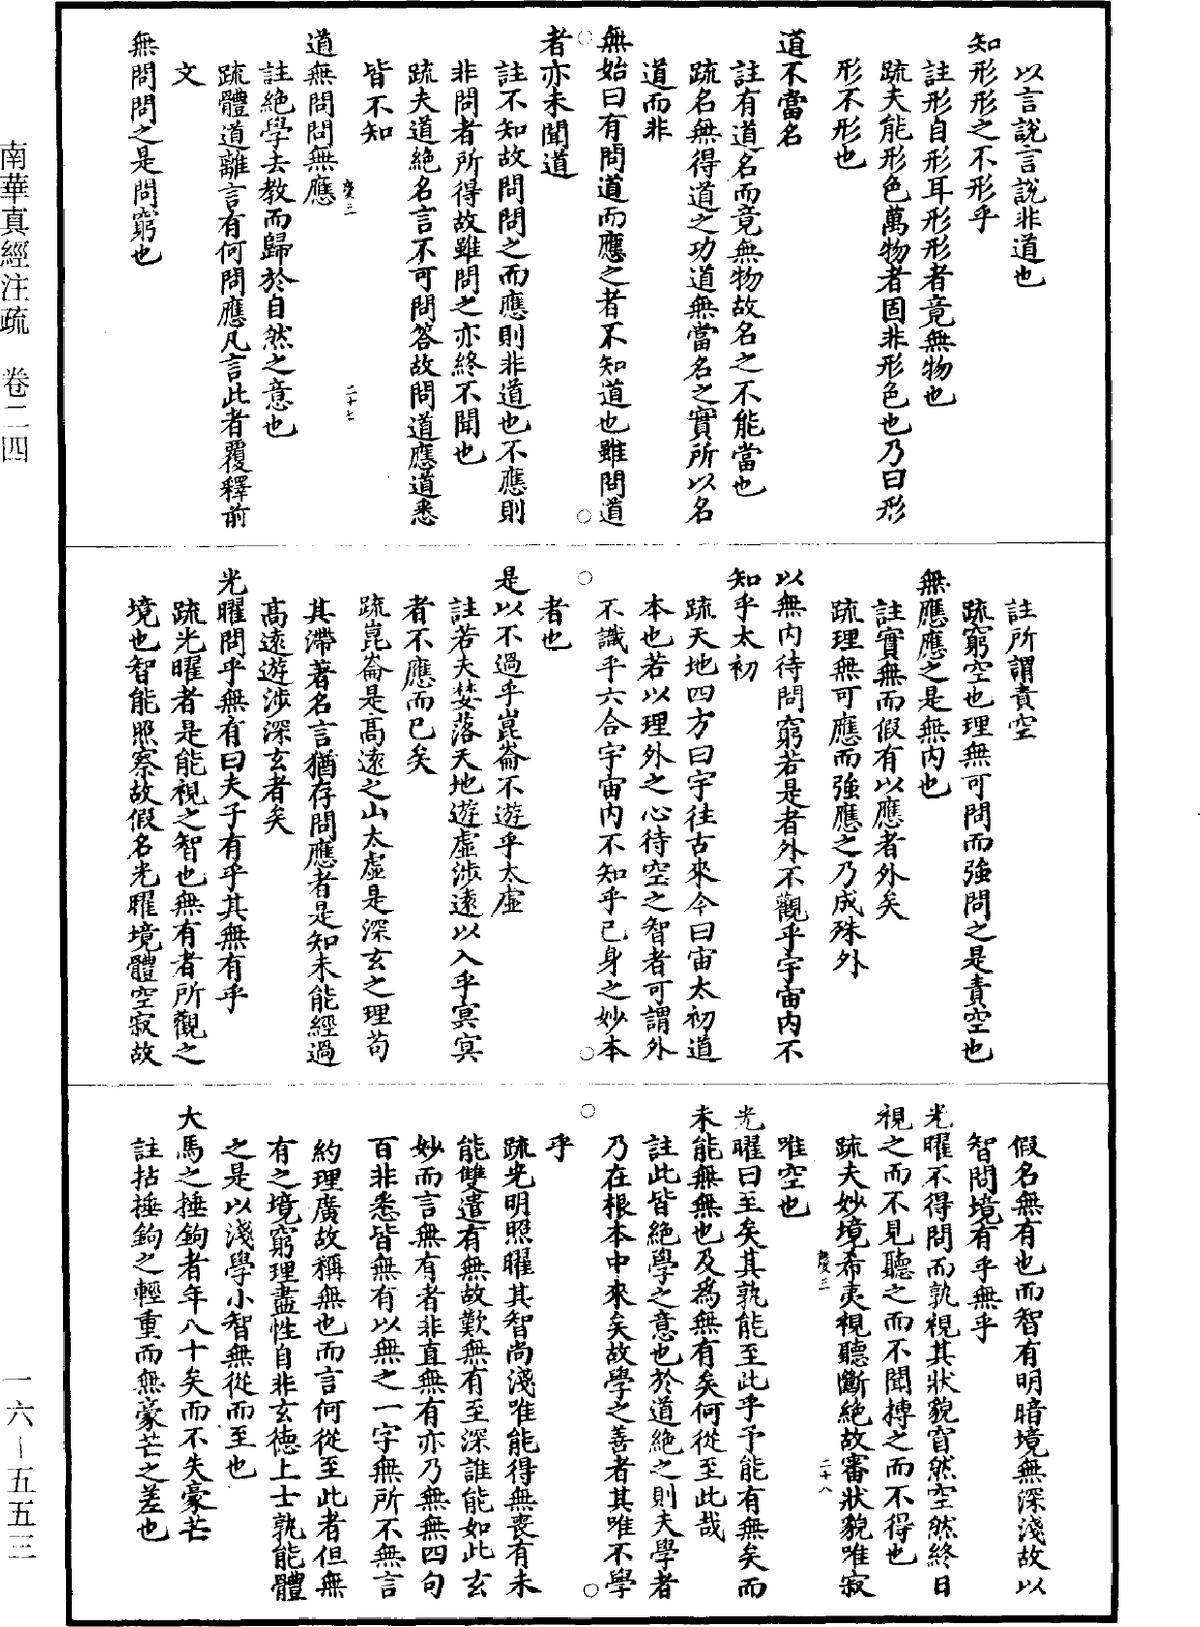 南華真經注疏　卷二四
一六—五五三
以言說言說非道也
知形形之不形乎
註形自形耳形形者竟無物也
疏夫能形色萬物者固非形色也乃曰形
形不形也
道不當名
註有道名而竟無物故名之不能當也
疏名無得道之功道無當名之實所以名
道而非
無始曰有問道而應之者不知道也雖問道
者亦未聞道
註不知故問問之而應則非道也不應則
非問者所得故雖問之亦終不聞也
疏夫道絶名言不可問答故問道應道悉
皆不知
慶三　二十七
道無問問無應
註絶學去教而歸於自然之意也
疏體道離言有何問應凡言此者覆釋前
文
無問問之是問窮也
註所謂責空
疏窮空也理無可問而強問之是責空也
無應應之是無内也
註實無而假有以應者外矣
疏理無可應而強應之乃成殊外
以無内待問窮若是者外不觀乎宇宙内不
知乎太初
疏天地四方曰宇往古來今曰宙太初道
本也若以理外之心待空之智者可謂外
不識乎六合宇宙内不知乎己身之妙本
者也
是以不過乎崑崙不遊乎太虛
註若夫婪落天地遊虛涉遠以入乎冥冥
者不應而已矣
疏崑崙是高遠之山太虛是深玄之理苟
其滯著名言猶存問應者是知未能經過
高遠遊涉深玄者矣
光曜問乎無有曰夫子有乎其無有乎
疏光曜者是能視之智也無有者所觀之
境也智能照察故假名光曜境體空寂故
假名無有也而智有明暗境無深淺故以
智問境有乎無乎
光曜不得問而孰視其狀貌窅然空然終日
視之而不見聽之而不聞搏之而不得也
疏夫妙境希夷視聽斷絶故審狀貌唯寂
唯空也
慶三　二十八
光曜曰至矣其孰能至此乎予能有無矣而
未能無無也及爲無有矣何從至此哉
註此皆絶學之意也於道絶之則夫學者
乃在根本中來矣故學之善者其唯不學
乎
疏光明照曜其智尚淺唯能得無喪有未
能雙遣有無故歎無有至深誰能如此玄
妙而言無有者非直無有亦乃無無四句
百非悉皆無有以無之一字無所不無言
約理廣故稱無也而言何從至此者但無
有之境窮理盡性自非玄德上士孰能體
之是以淺學小智無從而至也
大馬之捶鉤者年八十矣而不失豪芒
註拈捶鉤之輕重而無豪芒之差也